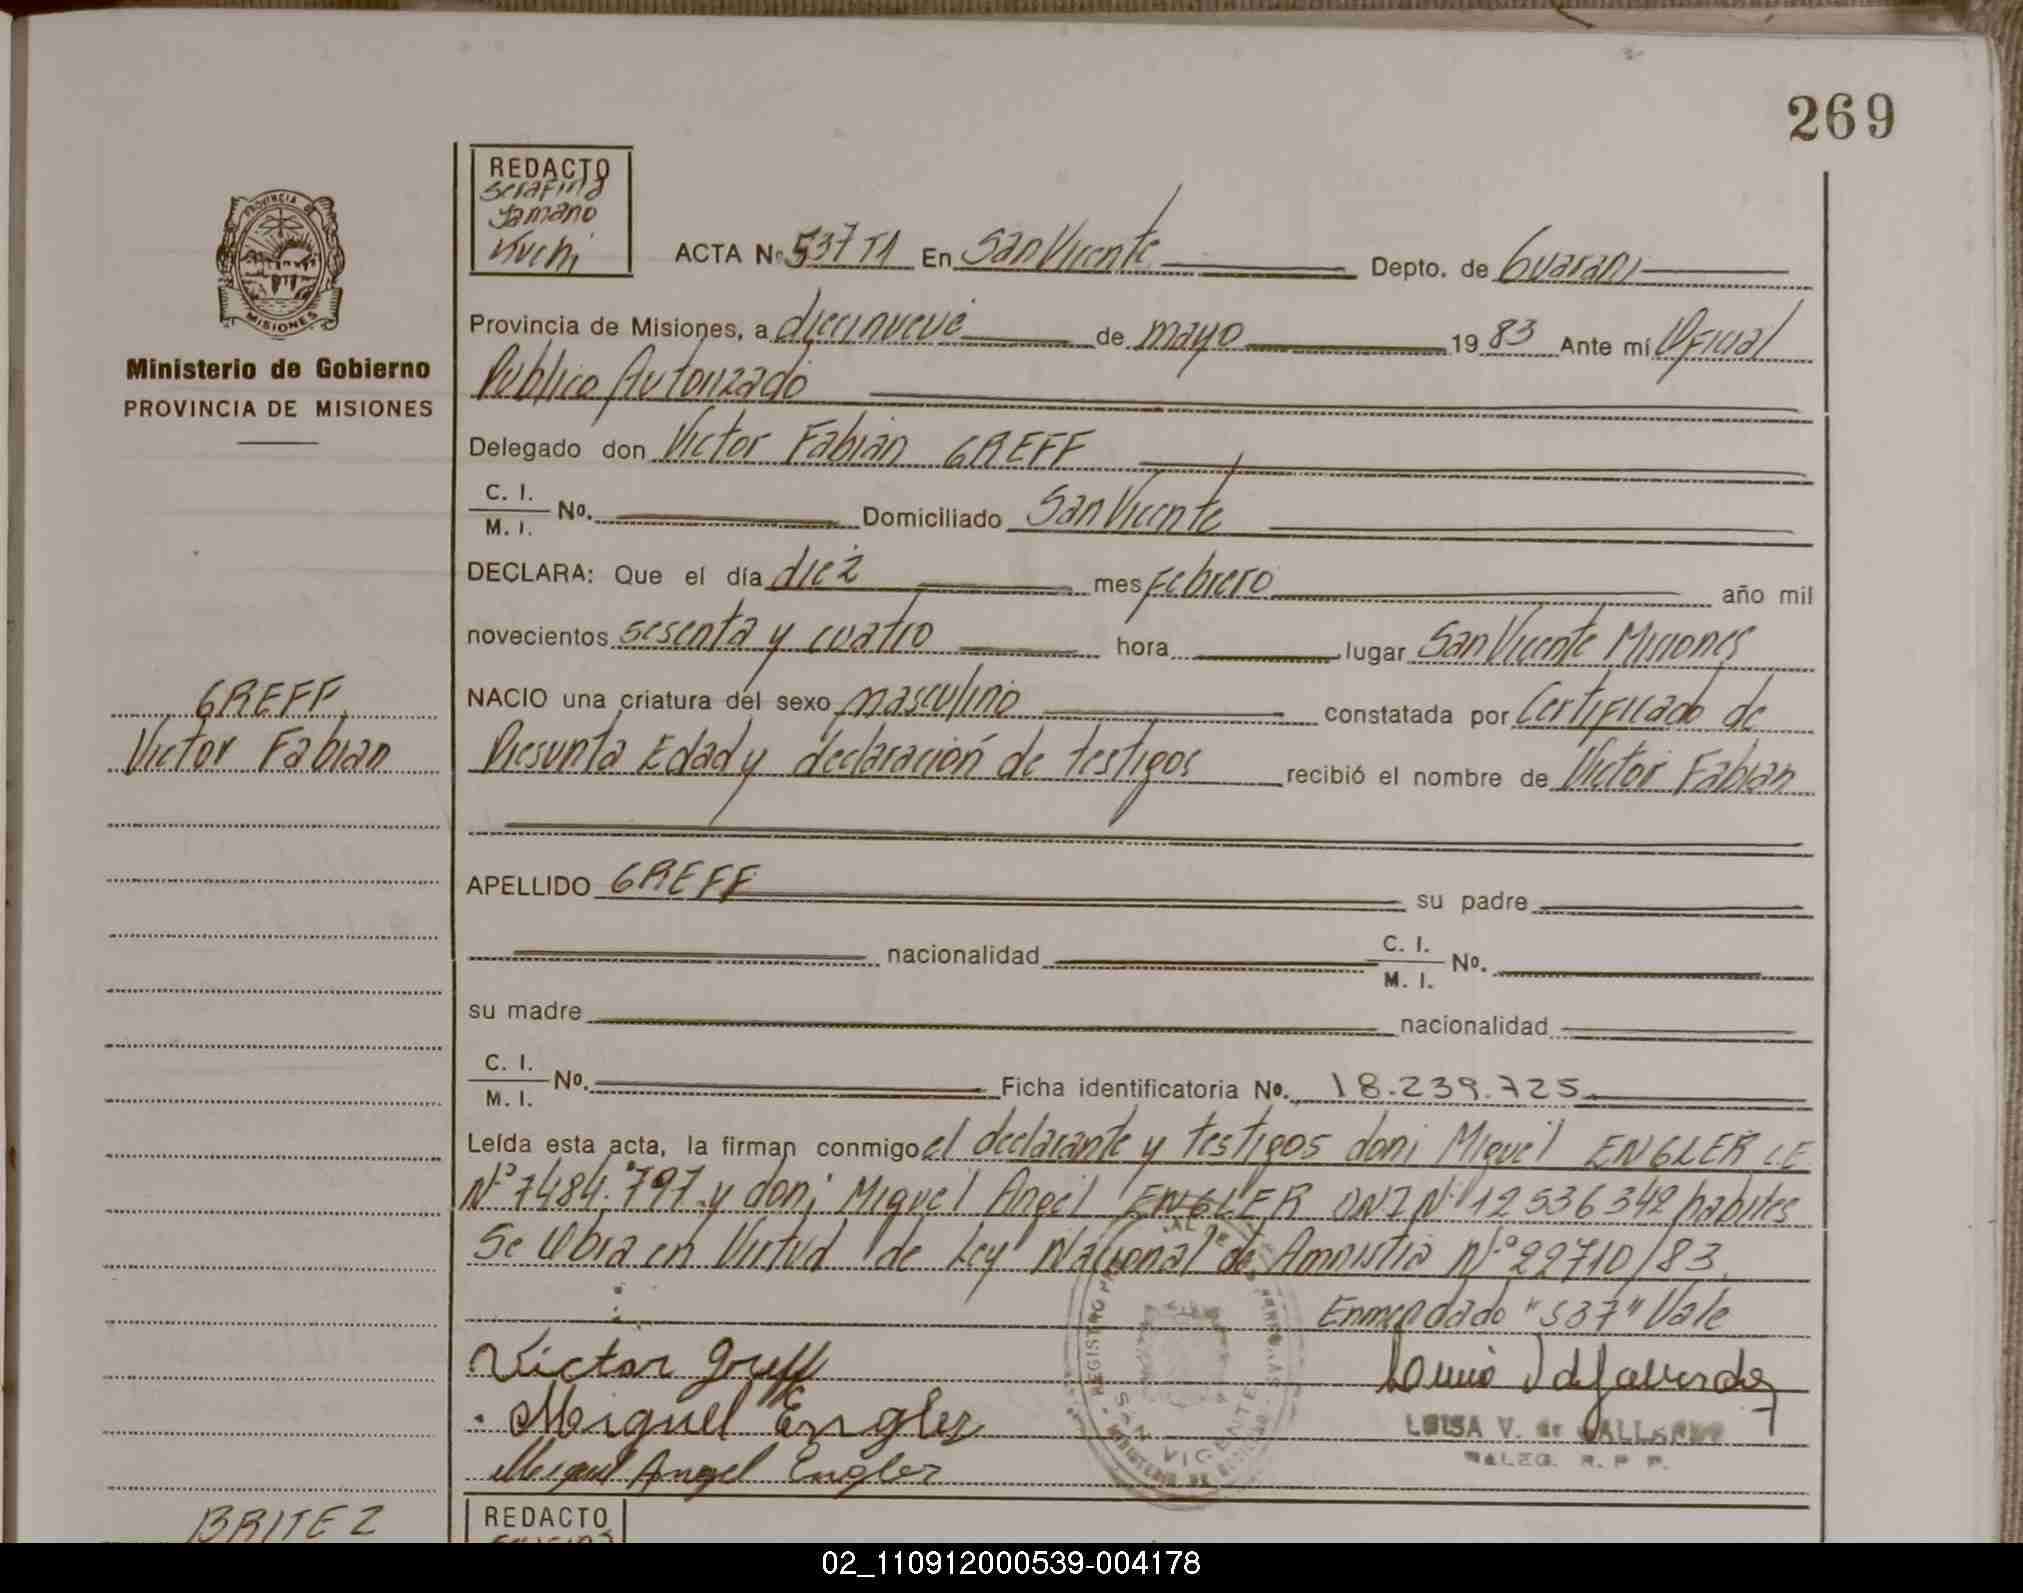 269
REDACTO
Serafina
Tamano
Kuchi
PROVINCIA DE
MISIONES
Ministerio de Gobierno
PROVINCIA DE MISIONES
ACTA Nº 537 T1 En San Vicente Depto. de Guarani
Provincia de Misiones, a diecinueve de mayo 1983 Ante mí Oficial
Publico Autorizado
Delegado don Victor Fabian GREFF
C. I. / M. I. Nº. Domiciliado San Vicente
DECLARA: Que el día diez mes Febrero año mil
novecientos sesenta y cuatro hora lugar San Vicente Misiones
GREFF
Victor Fabian
NACIO una criatura del sexo masculino constatada por Certificado de
Presunta Edad y declaración de testigos recibió el nombre de Victor Fabian
APELLIDO GREFF su padre
nacionalidad C. I. / M. I. Nº.
su madre nacionalidad
C. I. / M. I. Nº. Ficha identificatoria Nº. 18.239.725
Leída esta acta, la firman conmigo el declarante y testigos don: Miguel ENGLER LE
Nº 7484.797 y don: Miguel Angel ENGLER DNI Nº 12536342 habiles
Se labra en Virtud de Ley Nacional de Amnistia Nº 22710/83
Enmendado "537" Vale
Victor Greff
Miguel Engler
Miguel Angel Engler
SAN VICENTE
LUISA V. de
BRITEZ
REDACTO
02_110912000539-004178